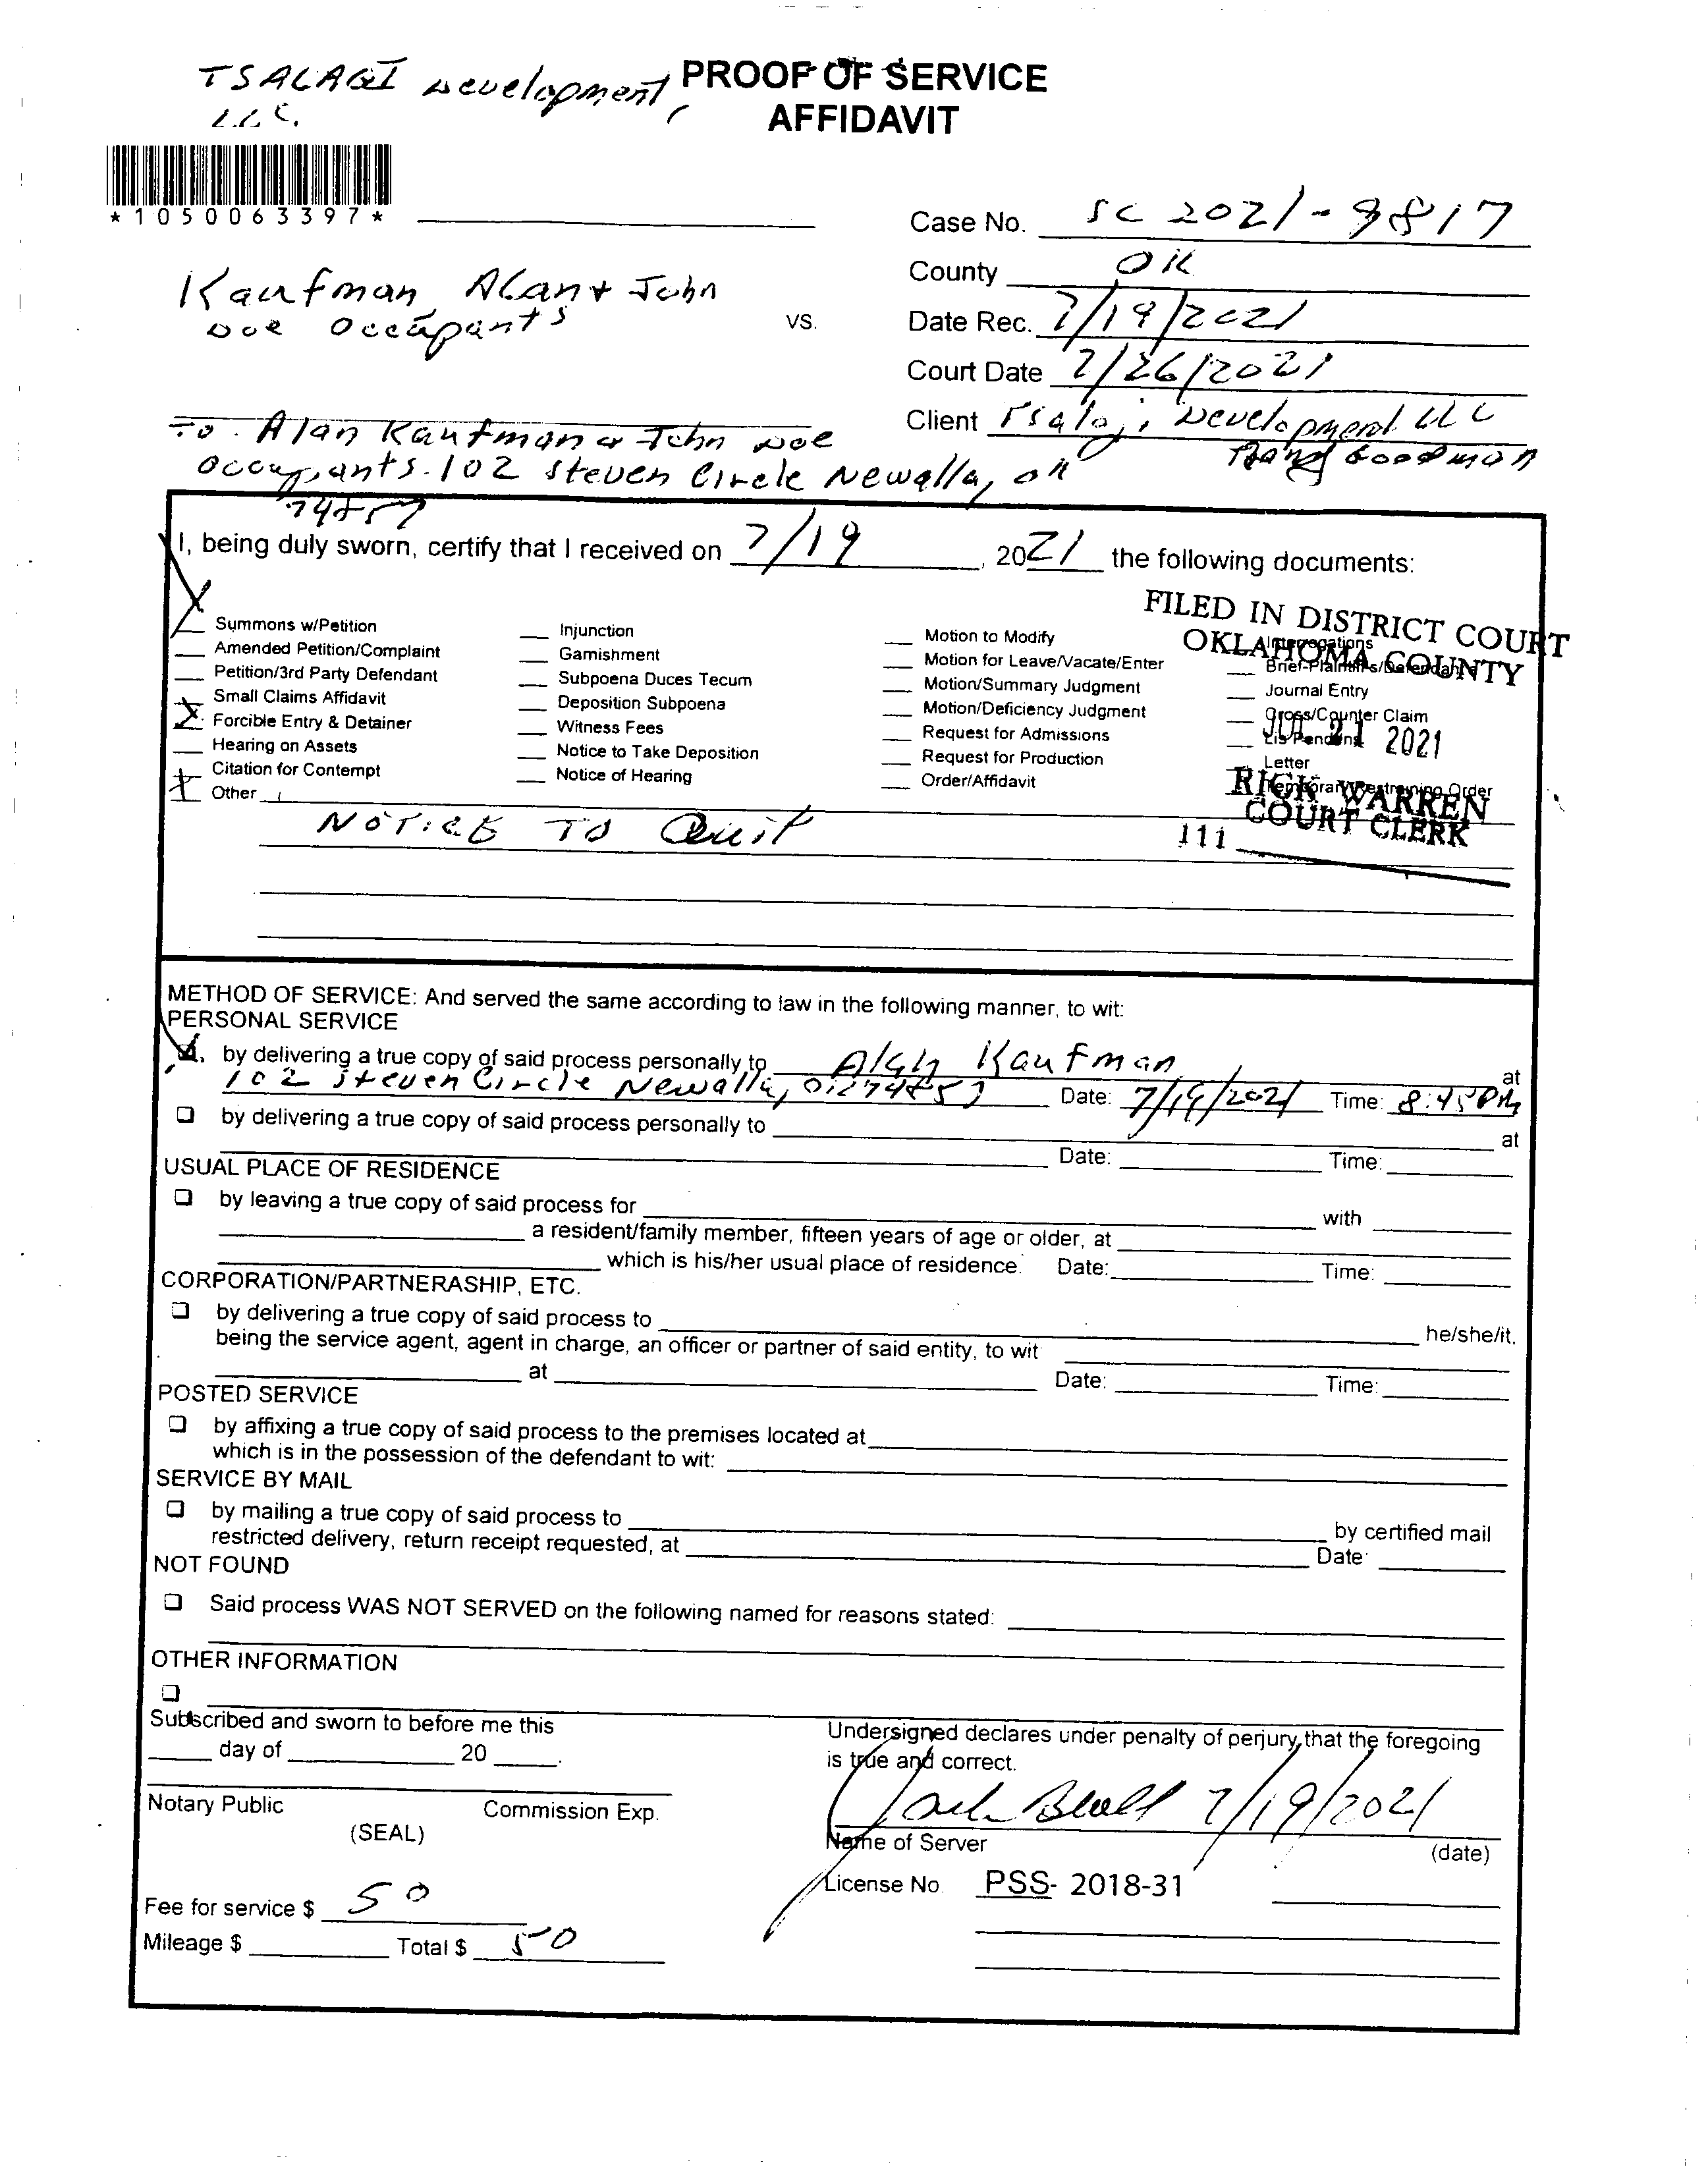 TSALAGI Development,
LLC.
PROOF OF SERVICE
AFFIDAVIT
*1050063397*
Case No. SC 2021-9817
County OK
Kaufman Alan + John
Doe Occupants
vs.
Date Rec. 7/19/2021
Court Date 7/26/2021
Client Tsalagi Development LLC
Goodman
To. Alan Kaufman & John Doe
Occupants. 102 Steven Circle Newalla, OK
74857
I, being duly sworn, certify that I received on 7/19, 2021 the following documents:
FILED IN DISTRICT COURT
OKLAHOMA COUNTY
JUL 21 2021
RICK WARREN
COURT CLERK
111
X Summons w/Petition
Amended Petition/Complaint
Petition/3rd Party Defendant
Small Claims Affidavit
X Forcible Entry & Detainer
Hearing on Assets
Citation for Contempt
X Other
NOTICE TO Quit
Injunction
Garnishment
Subpoena Duces Tecum
Deposition Subpoena
Witness Fees
Notice to Take Deposition
Notice of Hearing
Motion to Modify
Motion for Leave/Vacate/Enter
Motion/Summary Judgment
Motion/Deficiency Judgment
Request for Admissions
Request for Production
Order/Affidavit
Interrogations
Brief-Plaintiffs/Defendants
Journal Entry
Cross/Counter Claim
Lis Pendens
Letter
Temporary/Restraining Order
METHOD OF SERVICE: And served the same according to law in the following manner, to wit:
PERSONAL SERVICE
by delivering a true copy of said process personally to Alan Kaufman at
102 Steven Circle Newalla, OK 74857 Date: 7/19/2021 Time: 8:45 PM
by delivering a true copy of said process personally to at
Date: Time:
USUAL PLACE OF RESIDENCE
by leaving a true copy of said process for with
a resident/family member, fifteen years of age or older, at
which is his/her usual place of residence. Date: Time:
CORPORATION/PARTNERASHIP, ETC.
by delivering a true copy of said process to he/she/it,
being the service agent, agent in charge, an officer or partner of said entity, to wit
at Date: Time:
POSTED SERVICE
by affixing a true copy of said process to the premises located at
which is in the possession of the defendant to wit:
SERVICE BY MAIL
by mailing a true copy of said process to by certified mail
restricted delivery, return receipt requested, at Date:
NOT FOUND
Said process WAS NOT SERVED on the following named for reasons stated:
OTHER INFORMATION
Subscribed and sworn to before me this
day of 20 .
Notary Public Commission Exp.
(SEAL)
Fee for service $ 50
Mileage $ Total $ 50
Undersigned declares under penalty of perjury, that the foregoing
is true and correct.
7/19/2021
Name of Server (date)
License No. PSS- 2018-31